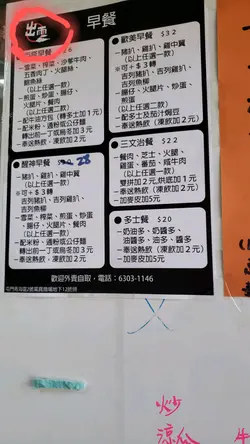 出雲
早餐
早餐
－雪菜、榨菜、沙嗲牛肉、
五香肉丁、火腿絲、
（以上任選一款）
－煎蛋、炒蛋、腸仔、
火腿片、餐肉
（以上任選一款）
－配牛油方包（轉多士加1元）
－配米粉、通粉或公仔麵
轉出前一丁或烏冬加3元
－奉送熱飲（凍飲加2元）
醒神早餐 28
－豬扒、雞扒、雞中翼
※可＋＄3轉
吉列豬扒、吉列雞扒、
吉列魚柳
（以上任選一款）
－雪菜、榨菜、煎蛋、炒蛋、
腸仔、火腿片、餐肉
（以上任選一款）
－配米粉、通粉或公仔麵
轉出前一丁或烏冬加3元
－奉送熱飲（凍飲加2元）
歐美早餐 $32
－豬扒、雞扒、雞中翼
※可＋＄3轉
吉列豬扒、吉列雞扒、
吉列魚柳
（以上任選一款）
－煎蛋、炒蛋、腸仔、
火腿片、餐肉
（以上任選一款）
－配多士及茄汁焗豆
－奉送熱飲（凍飲加2元）
三文治餐 $22
－餐肉、芝士、火腿、
雞蛋、番茄、咸牛肉
雙拼加2元,烘底加1元
－奉送熱飲（凍飲加2元）
－加麥皮加5元
多士餐 $20
－奶油多、奶醬多、
油醬多、油多、醬多
－奉送熱飲（凍飲加2元）
－加麥皮加5元
歡迎外賣自取，電話：6303-1146
炒
涼瓜
牛